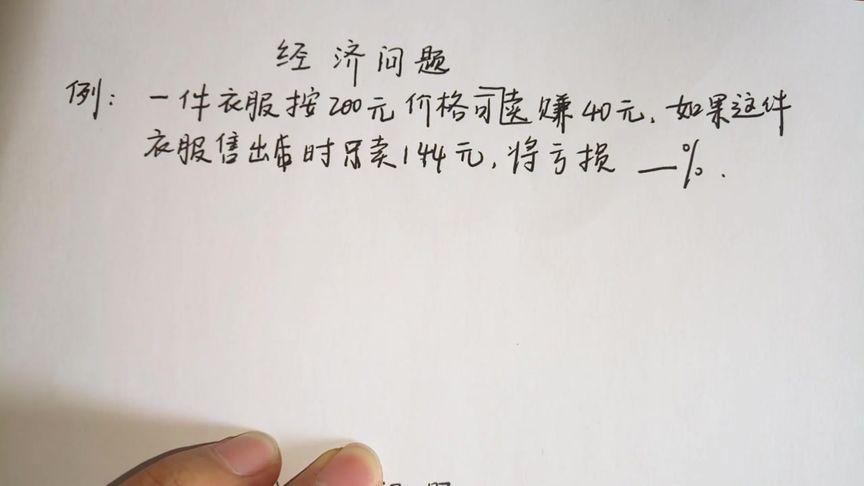 经济问题
例：一件衣服按200元价格可卖赚40元，如果这件
衣服售出时只卖144元，将亏损 __%．